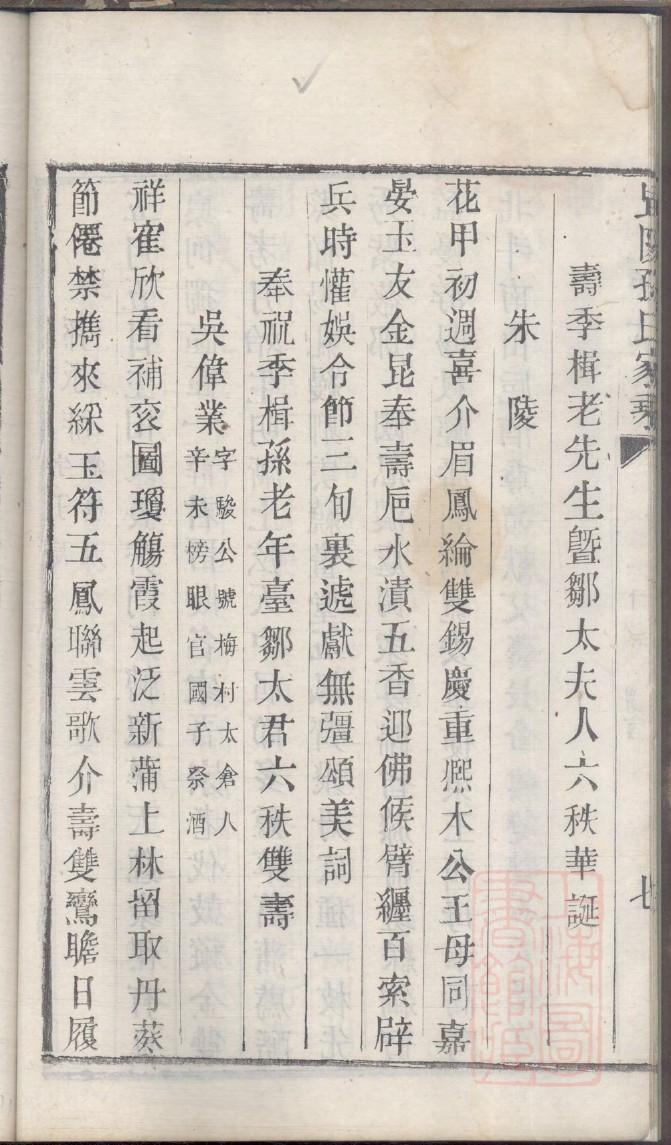 孫氏家乘
七
壽季楫老先生曁鄒太夫人六秩華誕
朱陵
花甲初週喜介眉鳳綸雙錫慶重熈木公王母同嘉
晏玉友金昆奉壽巵水漬五香迎佛候臂纒百索辟
兵時懽娛令節三旬裏遞獻無彊頌美詞
奉祝季楫孫老年臺鄒太君六秩雙壽
吳偉業字駿公號梅村太倉人
辛未榜眼官國子祭酒
祥寉欣看補衮圖瓊觴霞起泛新蒲上林留取丹葵
節僊禁攜來綵玉符五鳳聯雲歌介壽雙鸞瞻日履